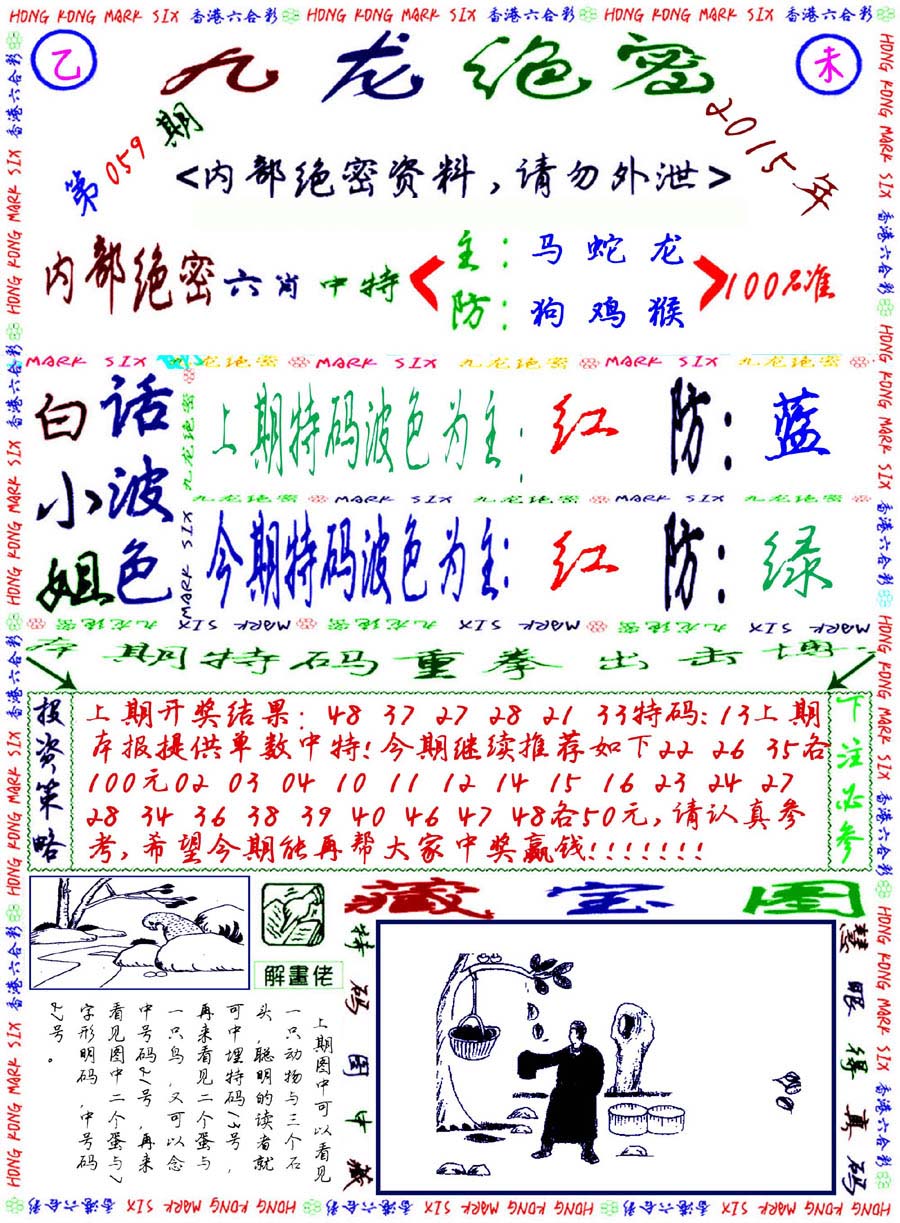 HONG KONG MARK SIX 香港六合彩 HONG KONG MARK SIX 香港六合彩 HONG KONG MARK SIX 香港六合彩
乙
九龙绝密
未
第059期
2015年
<内部绝密资料,请勿外泄>
内部绝密六肖中特
主:马蛇龙
防:狗鸡猴
100名准
MARK SIX 九龙绝密 MARK SIX 九龙绝密 MARK SIX 九龙绝密
白话
小波
姐色
上期特码波色为主:红 防:蓝
九龙绝密 MARK SIX 九龙绝密 MARK SIX 九龙绝密
今期特码波色为主:红 防:绿
MARK SIX 九龙绝密 MARK SIX 九龙绝密 MARK SIX 九龙绝密
期特码重拳出击
投资策略
上期开奖结果:48 37 27 28 21 33特码:13上期
本报提供单数中特!今期继续推荐如下22 26 35各
100元02 03 04 10 11 12 14 15 16 23 24 27
28 34 36 38 39 40 46 47 48各50元,请认真参
考,希望今期能再帮大家中奖赢钱!!!!!!!
下注必参
藏宝图
解畫佬
特码图中藏
慧眼得真码
上期图中可以看见
一只动物与三个石
头,聪明的读者就
可中埋特码13号,
再来看见二个蛋与
一只鸟,又可以念
中号码27号,再来
看见图中二个蛋与7
字形明码,中号码
27号。
HONG KONG MARK SIX 香港六合彩 HONG KONG MARK SIX 香港六合彩 HONG KONG MARK SIX 香港六合彩